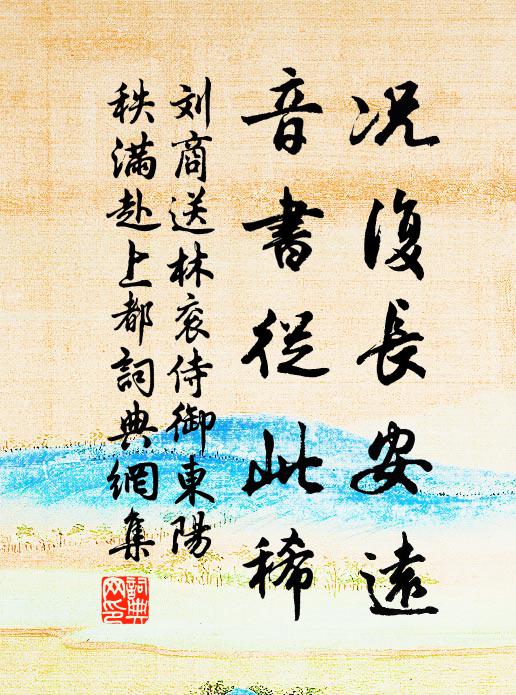 况復長安遠
音書從此稀
刘商送林衮侍御東陽
秩滿赴上都詞典網集
詞典網印